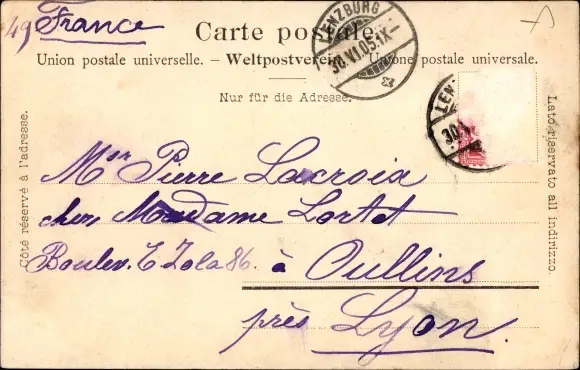 49 France
Carte postale.
Union postale universelle. – Weltpostverein. – Unione postale universale.
LENZBURG
30.VI.05.IX–
Nur für die Adresse.
LENZ
30.
Côté réservé à l'adresse.
Lato riservato all indirizzo.
Mr Pierre Lacroix
chez Madame Lortet
Boulev. E Zola 86. à Oullins
près Lyon